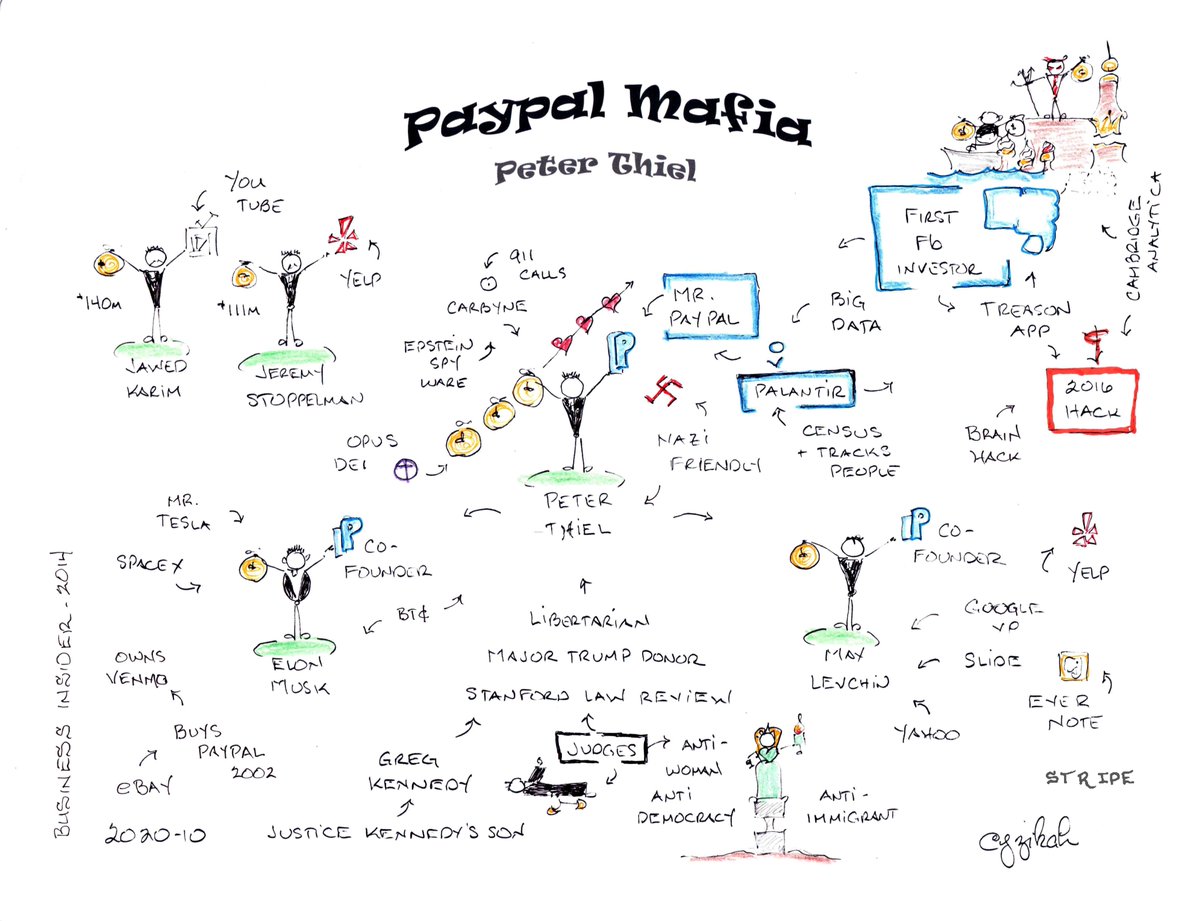 Paypal Mafia
Peter Thiel
YOU
TUBE
$140M
JAWED
KARIM
YELP
$111M
JEREMY
STOPPELMAN
911
CALLS
CARBYNE
EPSTEIN
SPY
WARE
OPUS
DEI
MR.
PAYPAL
P
NAZI
FRIENDLY
PETER
THIEL
BIG
DATA
PALANTIR
CENSUS
+ TRACKS
PEOPLE
FIRST
Fb
INVESTOR
CAMBRIDGE
ANALYTICA
TREASON
APP
2016
HACK
BRAIN
HACK
MR.
TESLA
SPACEX
P
CO-
FOUNDER
BT¢
ELON
MUSK
LIBERTARIAN
MAJOR TRUMP DONOR
STANFORD LAW REVIEW
P
CO-
FOUNDER
YELP
GOOGLE
VP
SLIDE
EVER
NOTE
YAHOO
MAX
LEVCHIN
BUSINESS INSIDER - 2014
OWNS
VENMO
BUYS
PAYPAL
2002
eBAY
GREG
KENNEDY
JUSTICE KENNEDY'S SON
JUDGES
ANTI-
WOMAN
ANTI
DEMOCRACY
ANTI-
IMMIGRANT
STRIPE
2020-10
cyzikah